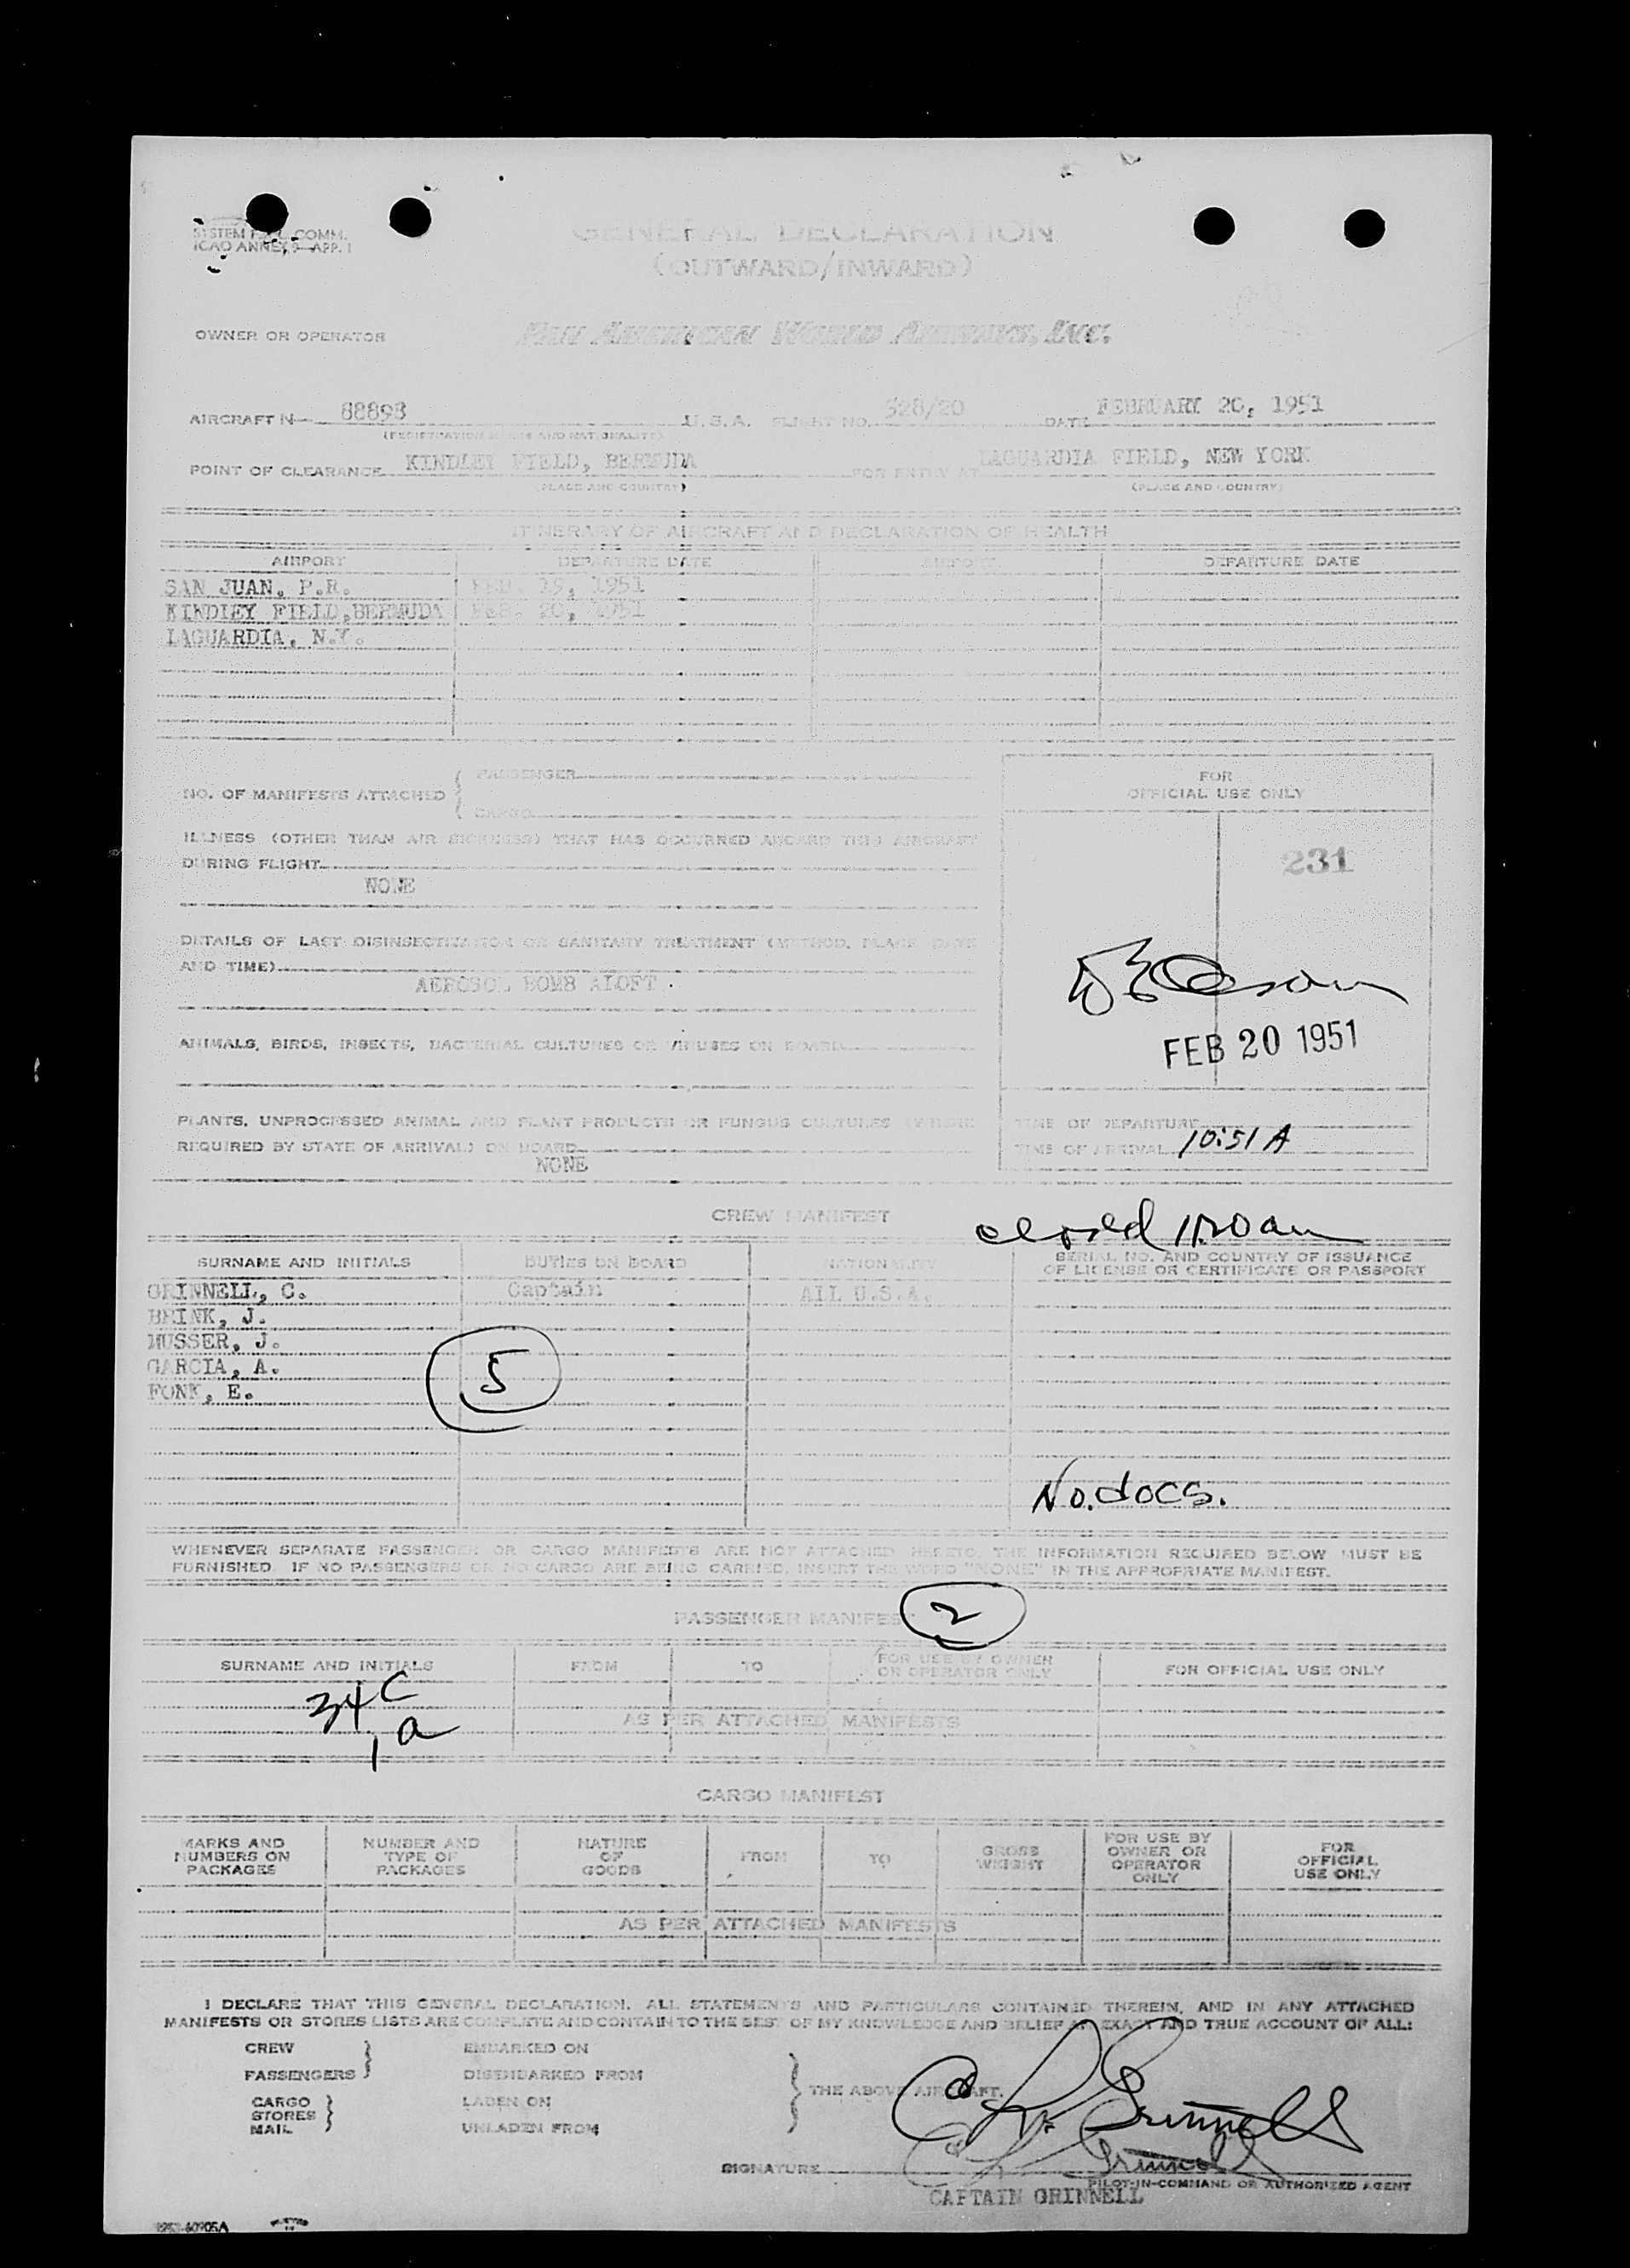 SYSTEM COMM.
ICAO ANNEX 9 APP. 1
GENERAL DECLARATION
(OUTWARD/INWARD)
OWNER OR OPERATOR PAN AMERICAN WORLD AIRWAYS, INC.
AIRCRAFT N 88898 U.S.A. FLIGHT NO. 528/20 DATE FEBRUARY 20, 1951
(REGISTRATION MARKS AND NATIONALITY)
POINT OF CLEARANCE KINDLEY FIELD, BERMUDA FOR ENTRY AT LAGUARDIA FIELD, NEW YORK
(PLACE AND COUNTRY) (PLACE AND COUNTRY)
ITINERARY OF AIRCRAFT AND DECLARATION OF HEALTH
AIRPORT DEPARTURE DATE AIRPORT DEPARTURE DATE
SAN JUAN, P.R. FEB. 19, 1951
KINDLEY FIELD, BERMUDA FEB. 20, 1951
LAGUARDIA, N.Y.
NO. OF MANIFESTS ATTACHED { PASSENGER
CARGO
FOR
OFFICIAL USE ONLY
ILLNESS (OTHER THAN AIR SICKNESS) THAT HAS OCCURRED ABOARD THIS AIRCRAFT
DURING FLIGHT
NONE
231
DETAILS OF LAST DISINSECTIZATION OR SANITARY TREATMENT (METHOD, PLACE, DATE
AND TIME)
AEROSOL BOMB ALOFT.
FEB 20 1951
ANIMALS, BIRDS, INSECTS, BACTERIAL CULTURES OR VIRUSES ON BOARD
PLANTS, UNPROCESSED ANIMAL AND PLANT PRODUCTS OR FUNGUS CULTURES (WHERE
REQUIRED BY STATE OF ARRIVAL) ON BOARD
NONE
TIME OF DEPARTURE
TIME OF ARRIVAL 10:51 A
CREW MANIFEST
closed 11:20 am
SURNAME AND INITIALS DUTIES ON BOARD NATIONALITY SERIAL NO. AND COUNTRY OF ISSUANCE
OF LICENSE OR CERTIFICATE OR PASSPORT
GRINNELL, C. Captain ALL U.S.A.
BRINK, J.
MUSSER, J.
GARCIA, A.
FONK, E.
5
No. docs.
WHENEVER SEPARATE PASSENGER OR CARGO MANIFESTS ARE NOT ATTACHED HERETO, THE INFORMATION REQUIRED BELOW MUST BE
FURNISHED. IF NO PASSENGERS OR NO CARGO ARE BEING CARRIED, INSERT THE WORD "NONE" IN THE APPROPRIATE MANIFEST.
PASSENGER MANIFEST 2
SURNAME AND INITIALS FROM TO FOR USE BY OWNER
OR OPERATOR ONLY FOR OFFICIAL USE ONLY
34 C
1 a
AS PER ATTACHED MANIFESTS
CARGO MANIFEST
MARKS AND
NUMBERS ON
PACKAGES
NUMBER AND
TYPE OF
PACKAGES
NATURE
OF
GOODS
FROM
TO
GROSS
WEIGHT
FOR USE BY
OWNER OR
OPERATOR
ONLY
FOR
OFFICIAL
USE ONLY
AS PER ATTACHED MANIFESTS
I DECLARE THAT THIS GENERAL DECLARATION, ALL STATEMENTS AND PARTICULARS CONTAINED THEREIN, AND IN ANY ATTACHED
MANIFESTS OR STORES LISTS ARE COMPLETE AND CONTAIN TO THE BEST OF MY KNOWLEDGE AND BELIEF AN EXACT AND TRUE ACCOUNT OF ALL:
CREW EMBARKED ON
PASSENGERS DISEMBARKED FROM
THE ABOVE AIRCRAFT.
CARGO LADEN ON
STORES
MAIL UNLADEN FROM
C. L. Grinnell
C. L. Grinnell
SIGNATURE
PILOT-IN-COMMAND OR AUTHORIZED AGENT
CAPTAIN GRINNELL